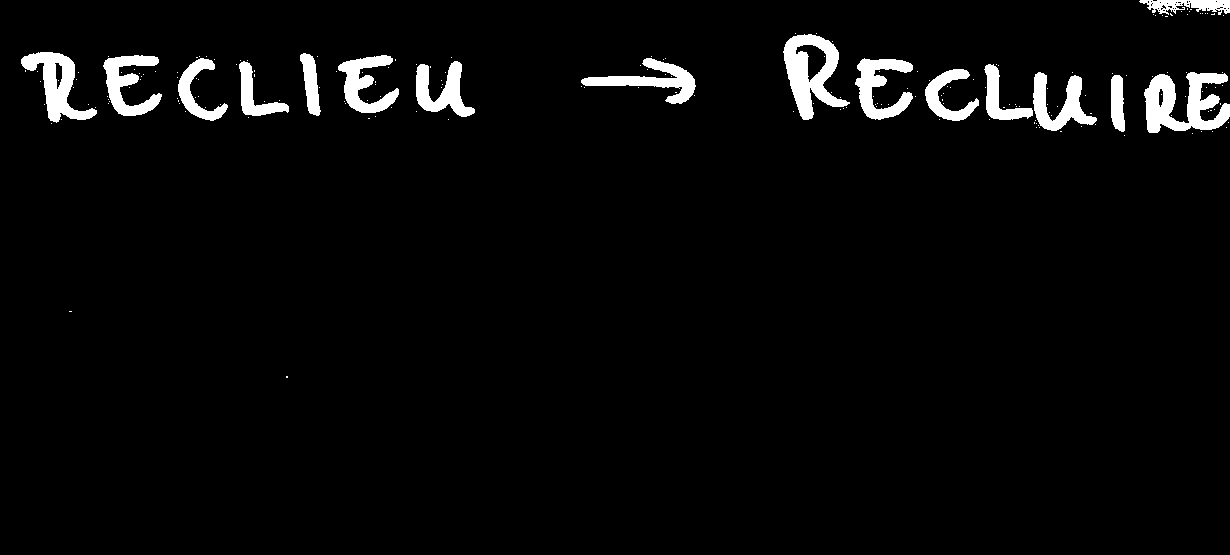 RECLIEU → RECLUIRE